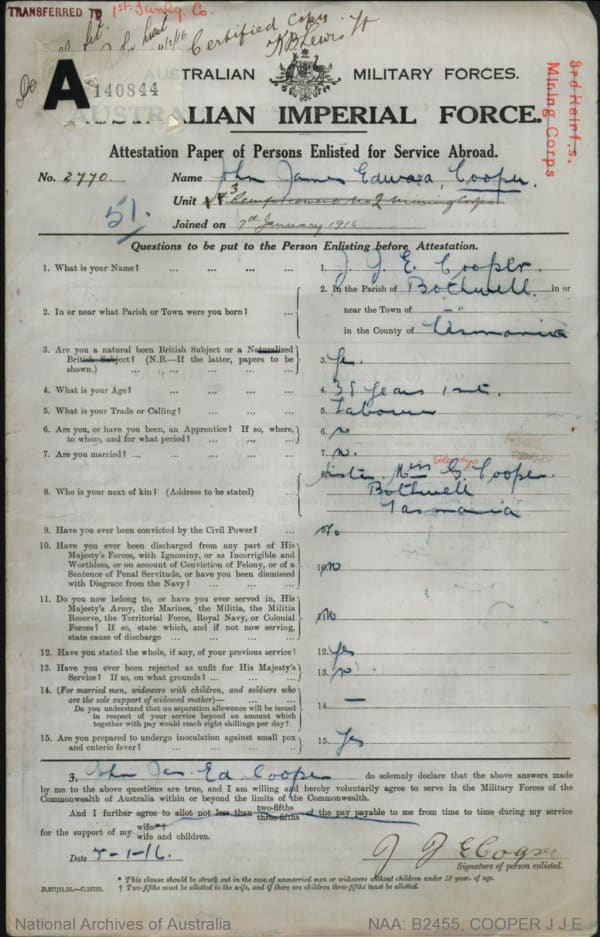 TRANSFERRED TO 1st Tunng. Co.
Certified Copy
11/5/16
K B Lewis Lt
A 140844
AUSTRALIAN MILITARY FORCES.
AUSTRALIAN IMPERIAL FORCE.
3rd Reinf.s.
Mining Corps
Attestation Paper of Persons Enlisted for Service Abroad.
No. 2770 Name John James Edward Cooper.
Unit 3 Reinforcement No 2 Mining Corps
51.
Joined on 7th January 1916
Questions to be put to the Person Enlisting before Attestation.
1. What is your Name? ... ... ... ...
1. J. J. E. Cooper.
2. In or near what Parish or Town were you born? ...
2. In the Parish of Bothwell in or
near the Town of -"-
in the County of Tasmania
3. Are you a natural born British Subject or a Naturalized
British Subject? (N.B.—If the latter, papers to be
shown.) ... ... ... ...
3.
4. What is your Age? ... ... ... ...
4. years
5. What is your Trade or Calling? ... ... ...
5. Labourer
6. Are you, or have you been, an Apprentice? If so, where,
to whom, and for what period? ... ... ...
6. no
7. Are you married? ... ... ... ...
7. no.
8. Who is your next of kin? (Address to be stated) ...
8. Sister Miss G Cooper
Gladys
Bothwell
Tasmania
9. Have you ever been convicted by the Civil Power? ...
No
10. Have you ever been discharged from any part of His
Majesty's Forces, with Ignominy, or as Incorrigible and
Worthless, or on account of Conviction of Felony, or of a
Sentence of Penal Servitude, or have you been dismissed
with Disgrace from the Navy? ... ... ...
10. no
11. Do you now belong to, or have you ever served in, His
Majesty's Army, the Marines, the Militia, the Militia
Reserve, the Territorial Force, Royal Navy, or Colonial
Forces? If so, state which, and if not now serving,
state cause of discharge ... ... ...
No
12. Have you stated the whole, if any, of your previous service?
12. yes
13. Have you ever been rejected as unfit for His Majesty's
Service? If so, on what grounds? ... ... ...
13. no.
14. (For married men, widowers with children, and soldiers who
are the sole support of widowed mother)—
Do you understand that no separation allowance will be issued
in respect of your service beyond an amount which
together with pay would reach eight shillings per day?
14. —
15. Are you prepared to undergo inoculation against small pox
and enteric fever? ... ... ... ...
15. Yes
I, John Jas. Ed. Cooper do solemnly declare that the above answers made
by me to the above questions are true, and I am willing and hereby voluntarily agree to serve in the Military Forces of the
Commonwealth of Australia within or beyond the limits of the Commonwealth.
And I further agree to allot not less than two-fifths three-fifths of the pay payable to me from time to time during my service
for the support of my wife*† wife and children.
Date 7-1-16.
J J E Cooper
Signature of person enlisted.
* This clause should be struck out in the case of unmarried men or widowers without children under 18 years of age.
† Two-fifths must be allotted to the wife, and if there are children three-fifths must be allotted.
National Archives of Australia
NAA: B2455, COOPER J J E